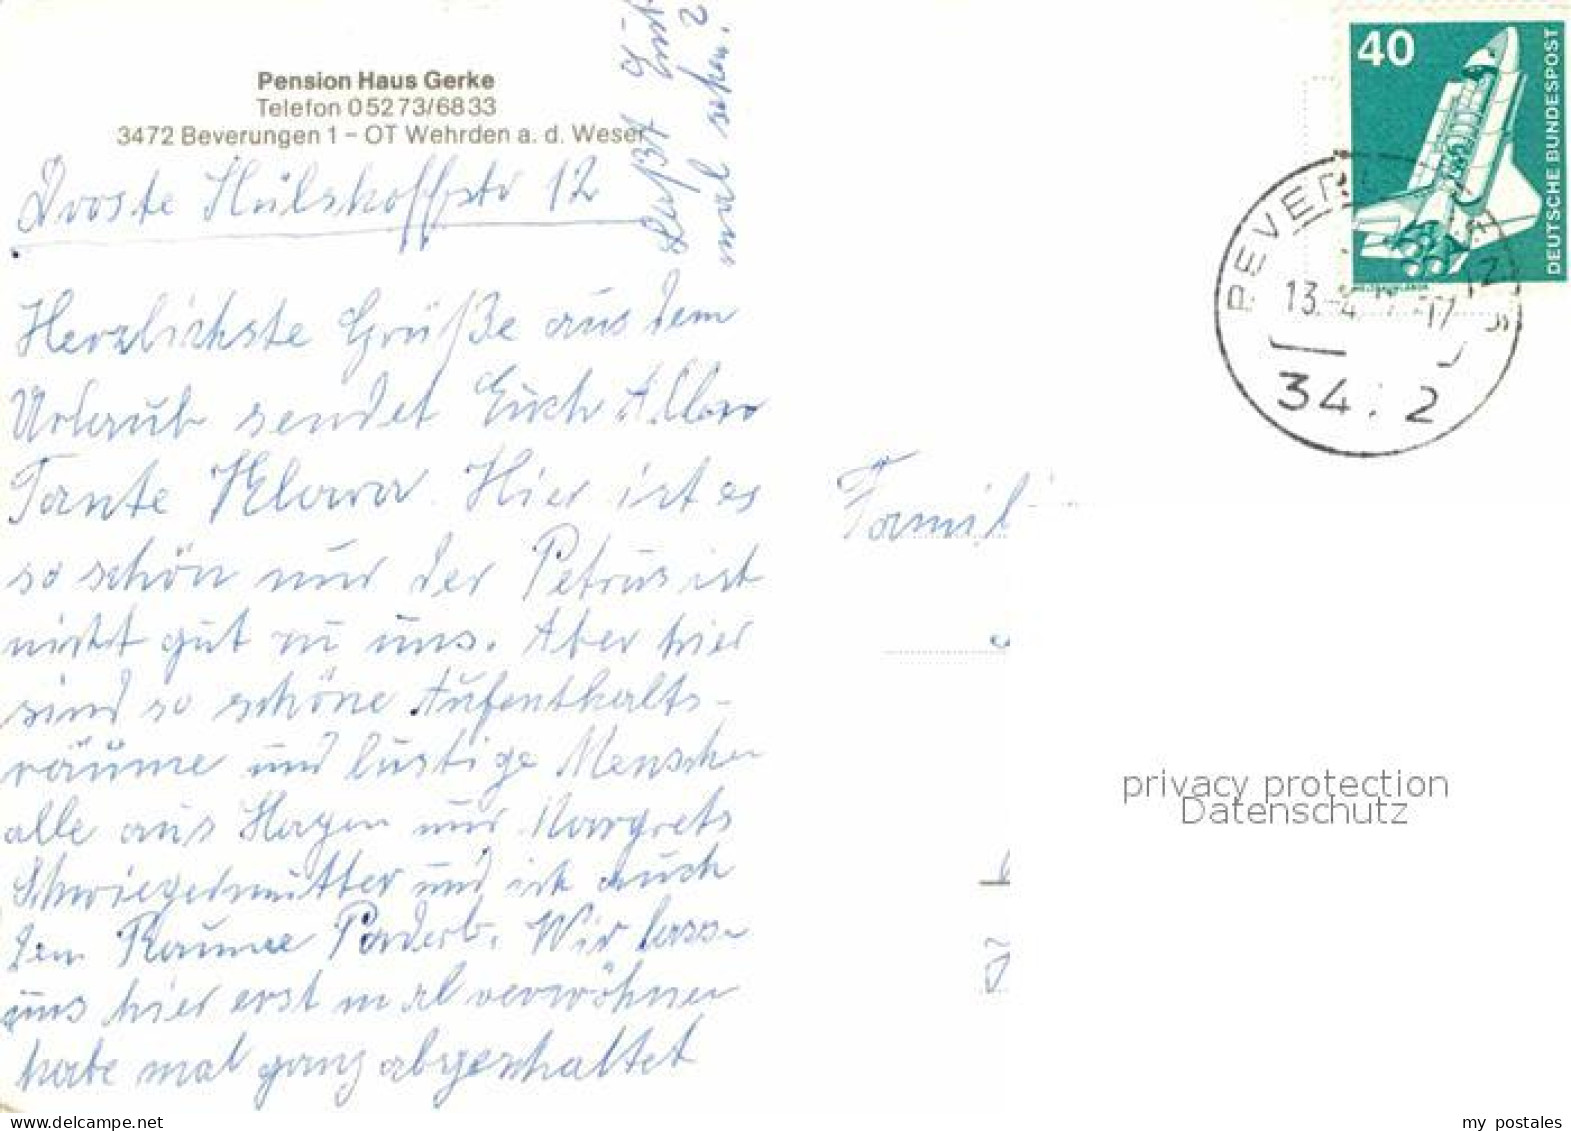 Pension Haus Gerke
Telefon 05273/6833
3472 Beverungen 1 - OT Wehrden a. d. Weser
Droste Hülshoffstr 12
Herzlichste Grüße aus dem
Urlaub sendet Euch Allen
Tante Klara. Hier ist es
so schön nur der Petrus ist
nicht gut zu uns. Aber hier
sind so schöne Aufenthalts-
räume und lustige Menschen
alle aus Hagen nur Margrets
Schwiegermutter und ich auch
dem Raume Paderb. Wir lassen
uns hier erst mal verwöhnen
habe mal ganz abgeschaltet
mal sehen.
40
DEUTSCHE BUNDESPOST
13.-4. -17
34. 2
Famil
privacy protection
Datenschutz
www.delcampe.net
my_postales